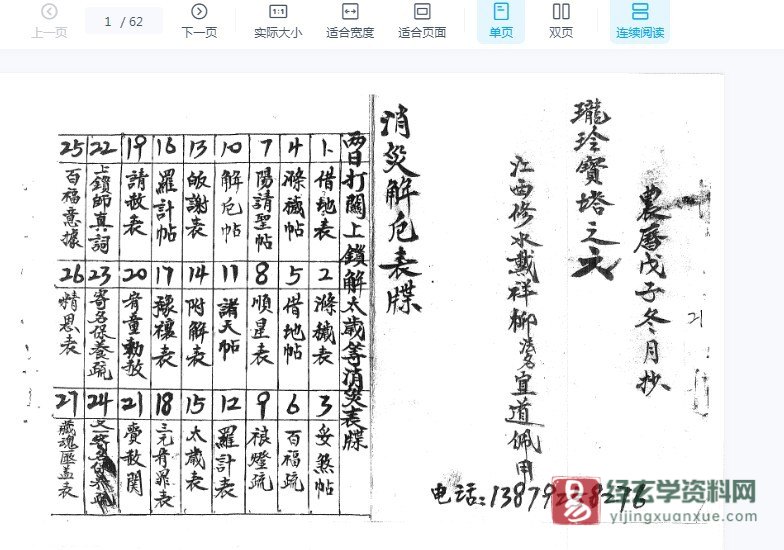 上一页
1 / 62
下一页
实际大小
适合宽度
适合页面
单页
双页
连续阅读
農曆戊子冬月抄
瓏玲寳塔之天
江西修水戴祥柳法名宜道佩用
电话:13879258276
消災解厄表牒
两日打關上鎖解太歳等消災表牒
1 借地表
2 滌穢表
3 妥煞帖
4 滌穢帖
5 借地帖
6 百福疏
7 陽請聖帖
8 順星表
9 禳燈疏
10 解厄帖
11 諸天帖
12 羅計表
13 皈謝表
14 附解表
15 太歲表
16 羅計帖
17 禳表
18 三元宥罪表
19 請赦表
20 宥童勅赦
21 賫赦関
22 上鎖師真詞
23 寄名保養疏
24
25 百福意據
26 情思表
27 藏魂匭盖表
易 经玄学资料网
yijingxuanxue.com